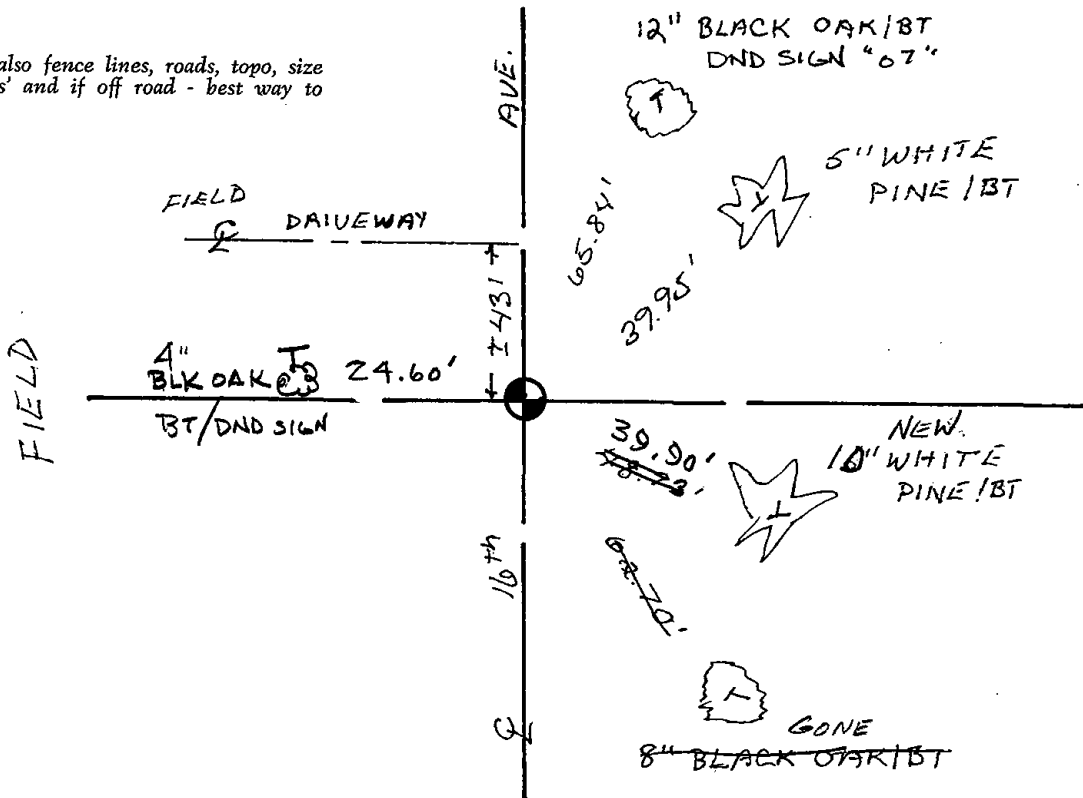 also fence lines, roads, topo, size
s' and if off road - best way to
12" BLACK OAK/BT
DND SIGN "07"
AVE.
5" WHITE
PINE/BT
FIELD
℄
DRIVEWAY
65.84'
39.95'
±431'
FIELD
4"
BLK OAK
T
24.60'
BT/DND SIGN
39.90'
NEW
10" WHITE
PINE/BT
62.70'
16th
℄
GONE
8" BLACK OAK/BT